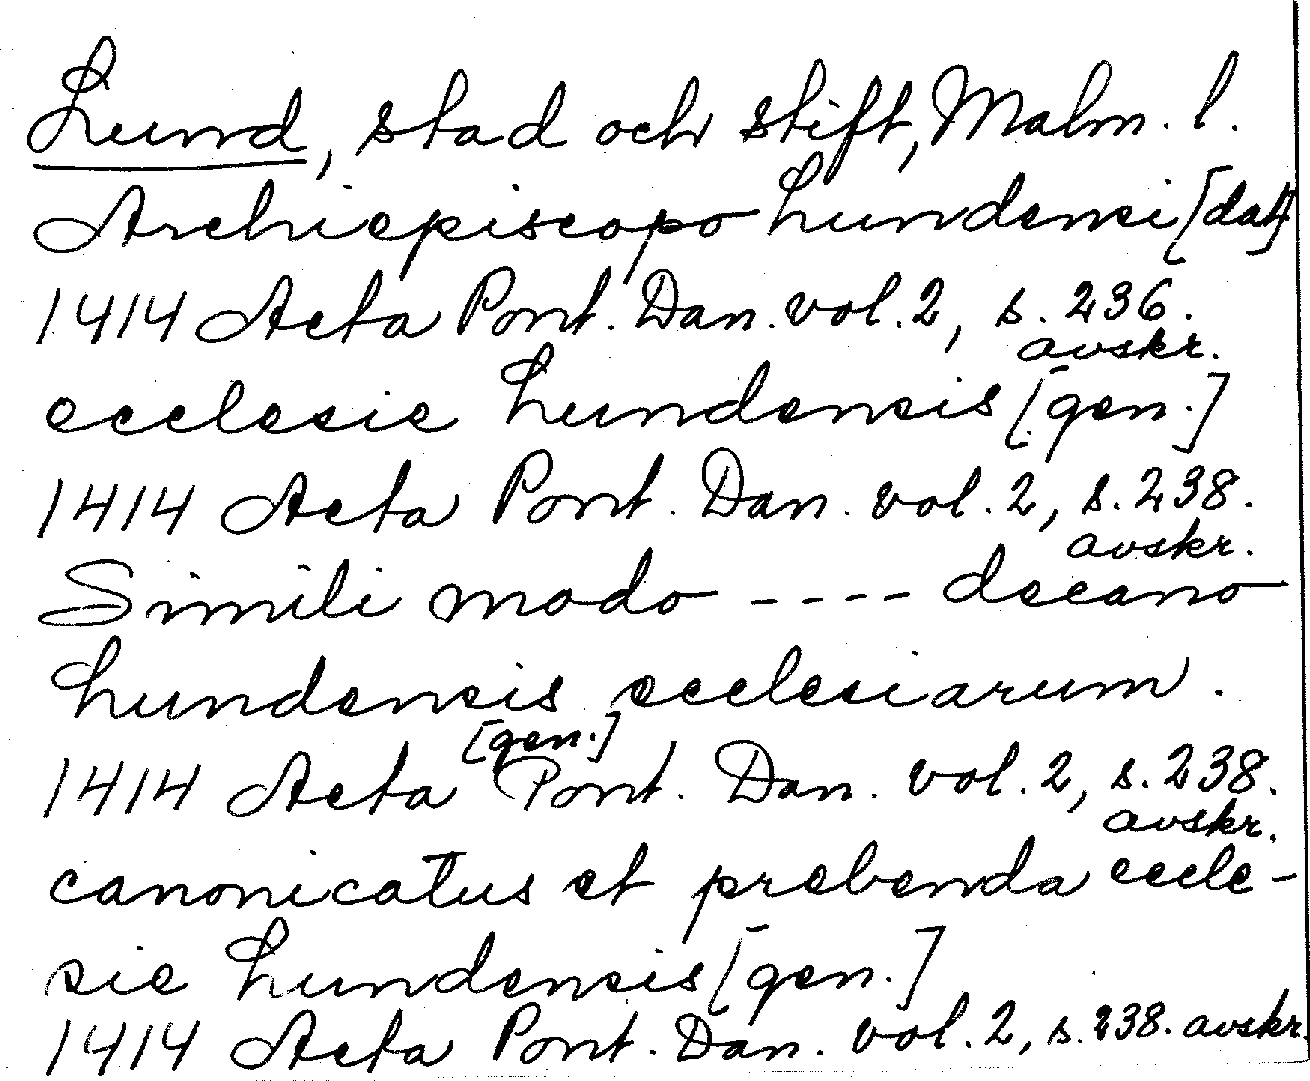 Lund, stad och stift, Malm. l.
Archiepiscopo Lundensi [dat]
1414 Acta Pont. Dan. vol. 2, s. 236.
avskr.
ecclesie Lundensis [gen.]
1414 Acta Pont. Dan. vol. 2, s. 238.
avskr.
Simili modo ---- decano
Lundensis ecclesiarum.
[gen.]
1414 Acta Pont. Dan. vol. 2, s. 238.
avskr.
canonicatus et prebenda eccle-
sie Lundensis [gen.]
1414 Acta Pont. Dan. vol. 2, s. 238. avskr